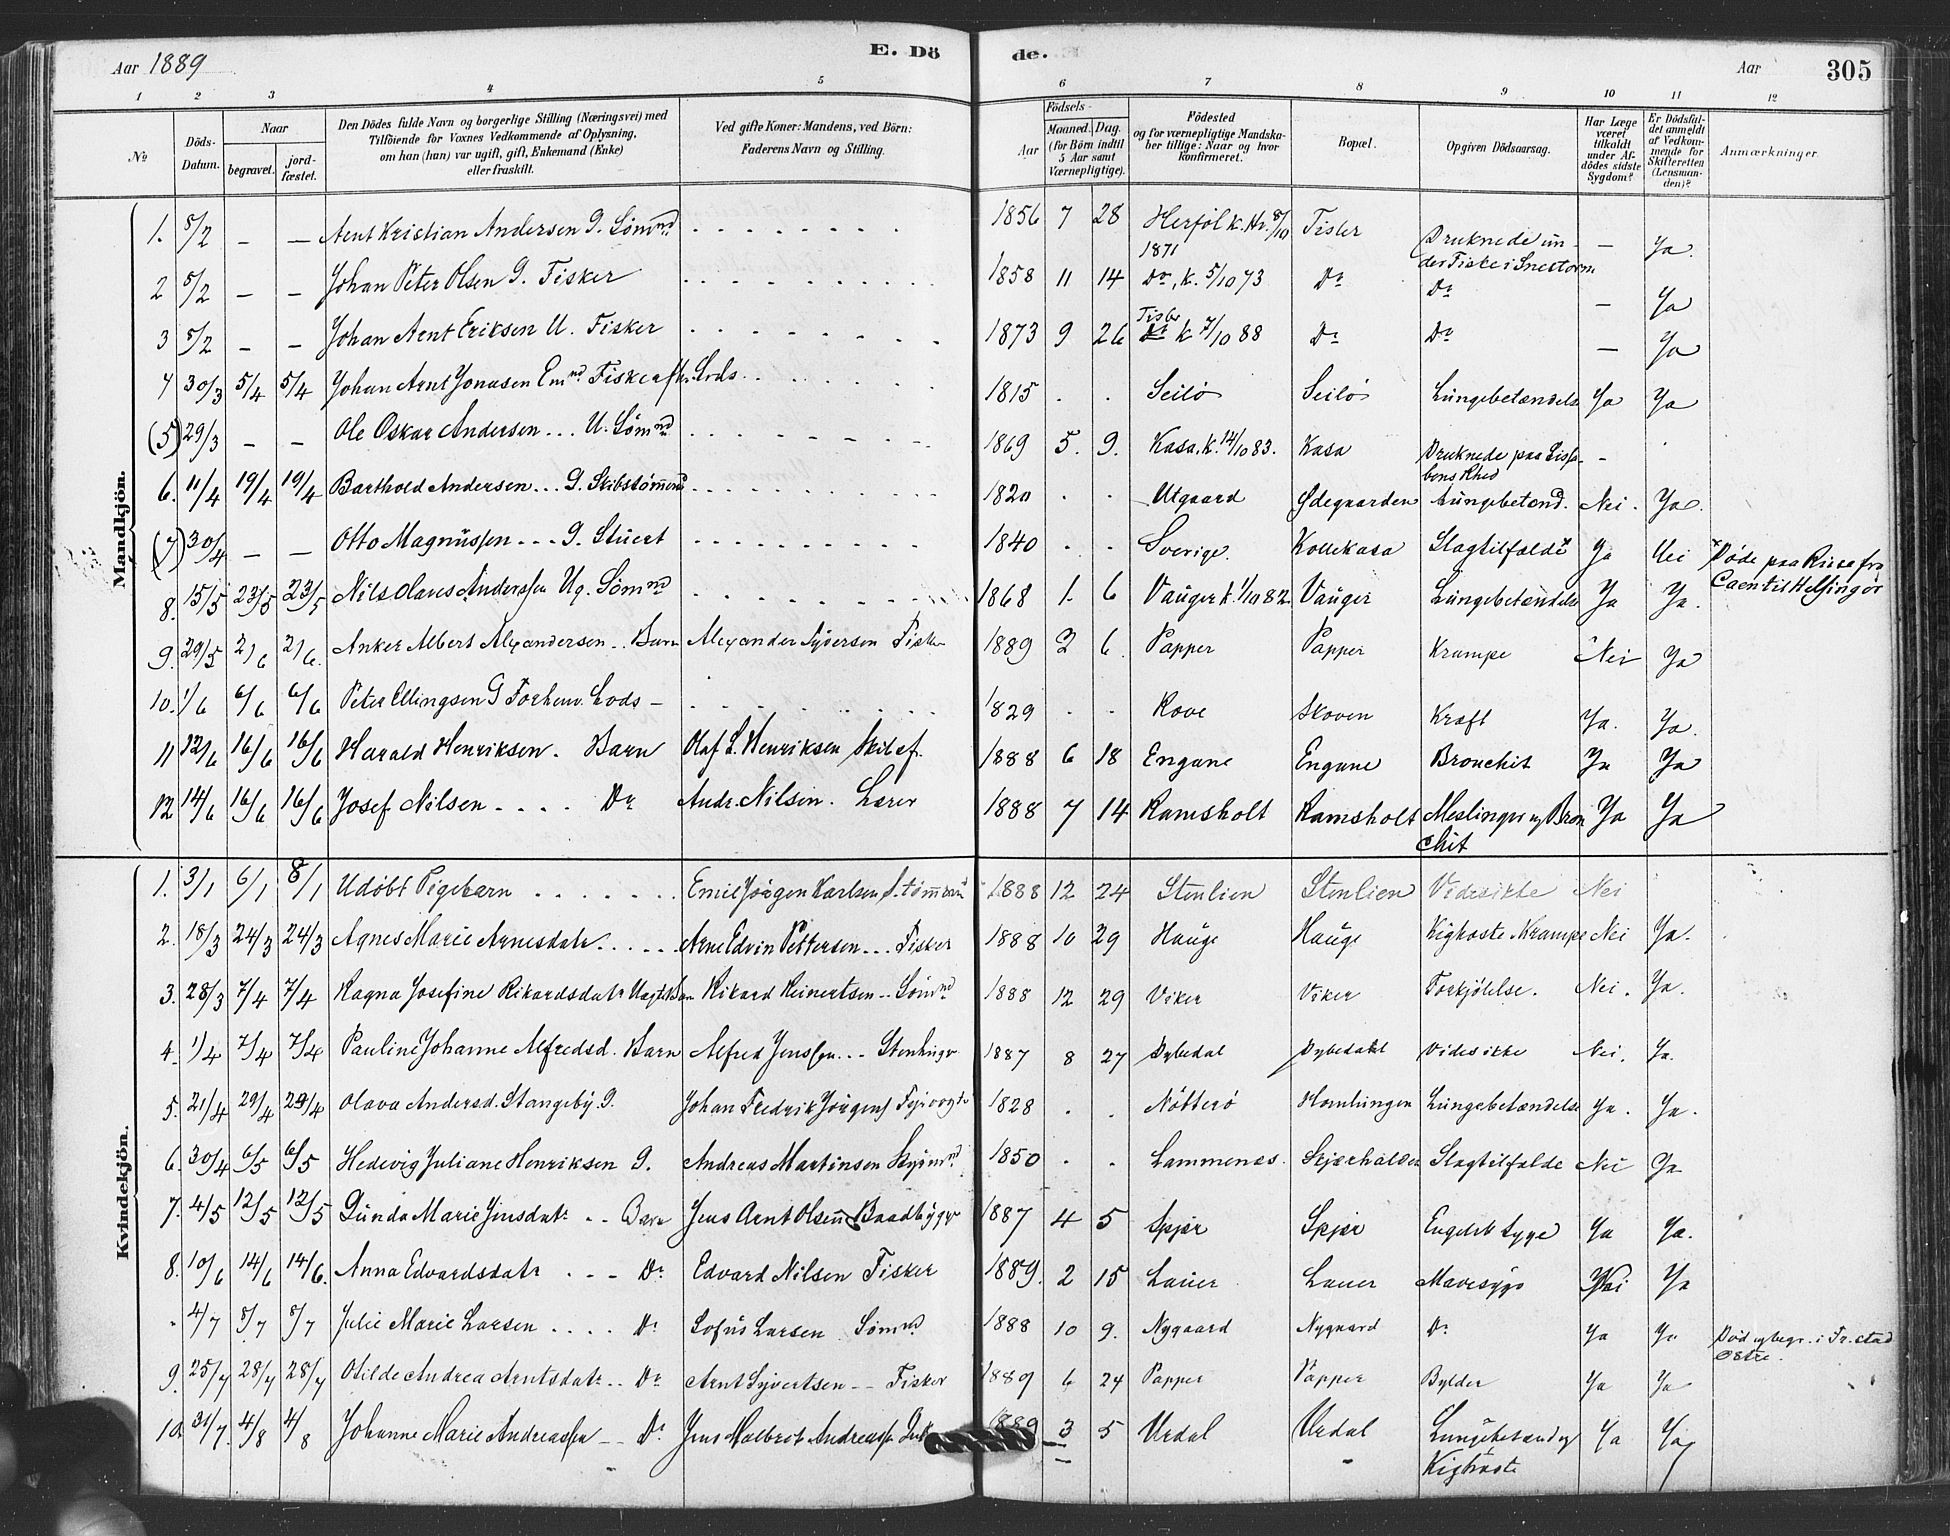 Aar 1889
E. Dö
de.
Aar 305
1 2 3 4 5 6 7 8 9 10 11 12
No
Döds-Datum.
Naar
begravet. jord-fæstet.
Den Dödes fulde Navn og borgerlige Stilling (Næringsvei) med
Tilföiende for Voxnes Vedkommende af Oplysning,
om han (hun) var ugift, gift, Enkemand (Enke)
eller fraskilt.
Ved gifte Koner: Mandens, ved Börn:
Faderens Navn og Stilling.
Födsels-
Aar Maaned. Dag.
(for Börn indtil
5 Aar samt
Værnepligtige).
Födested
og for værnepligtige Mandska-
ber tillige: Naar og hvor
konfirmeret.
Bopæl.
Opgiven Dödsaarsag.
Har Læge
været
tilkaldt
under Af-
dödes sidste
Sygdom?
Er Dödsfal-
det anmeldt
af Vedkom-
mende for
Skifteretten
(Lensman-
den)?
Anmærkninger.
Mandkjön.
1. 5/2 – – Arnt Kristian Andersen G. Sömnd 1856 7 28 Herföl k. Hv. 8/10 1871 Tisler Druknede un-der Fiske i Snestorm – Ja.
2 5/2 – – Johan Peter Olsen G. Fisker 1858 11 14 Do, k. 5/10 73 Do Do – Ja
3 5/2 – – Johan Arnt Eriksen U. Fisker 1873 9 26 Tisler k 7/10 88 Do Do – Ja
4 30/3 5/4 5/4 Johan Arnt Jonasen Emnd Fisker Lods 1815 . . Seilö Seilö Lungebetændelse Ja Ja
(5) 29/3 – – Ole Oskar Andersen ... U. Sömnd 1869 5. 9. Kasa, k. 14/10 83. Kasa Druknede paa Lissa-bons Rhed –
6. 11/4 19/4 19/4 Barthold Andersen ... G. Skibstömmd 1820 . . Utgaard Ödegaarden Lungebetænd. Nei. Ja.
(7) 30/4 – – Otto Magnussen --- G. Stuert 1840 . . Sverige. Kollekasa Slagtilfælde* Ja Nei *Döde paa Reise fra
Caen til Helsingör
8. 15/5 23/5 23/5 Nils Olaves Anderssen Ug. Sömnd 1868 1. 6 Vauger k. 1/10 82 Vauger Lungebetændelse Ja Ja.
9. 29/5 2/6 2/6. Anker Albert Alexandersen .. Barn Alexander Syversen Fisker 1889 2 6. Papper Papper Krampe Nei Ja
10. 1/6 6/6 6/6 Peter Ellingsen G Forhenv. Lods – 1829 . . Rove Skoven Kræft Ja. Ja.
11 12/6 16/6 16/6 Harald Henriksen. Barn Olaf L. Henriksen Skibsf. 1888 6 18 Engane Engane Bronchit Ja Ja
12 14/6 16/6 16/6 Josef Nilsen - . . . Do Andr. Nilsen. Lærer 1888 7 14 Ramsholt Ramsholt Meslinger og Bron
chit Ja Ja
Kvindekjön.
1. 3/1 6/1 8/1 Udöbt Pigebarn Emil Jörgen Karlsen S. tömmermd 1888 12 24 Stenlien Stenlien Vides ikke Nei
2. 18/3 24/3 24/3 Agnes Marie Arnesdatr. Arne Edvin Pettersen ... Fisker 1888 10 29 Hauge Hauge Kighoste Krampe Nei Ja.
3. 28/3 7/4 7/4 Ragna Josefine Rikardsdatr Rikard Reinertsen .. Sömnd 1888 12 29 Viker Viker Forkjölelse. Nei. Ja.
4. 1/4 7/4 7/4 Pauline Johanne Alfredsd. Barn Alfred Jenssen ... Stenhugr 1887 8 27 Dybedal Dybedahl Vides ikke Nei. Ja.
5. 21/4 29/4 29/4 Olava Andersd. Stangeby G. Johan Fredrik Jörgens Fyrvogte 1828 . . Nötterö Homlungen Lungebetændelse Ja. Ja.
6. 30/4 6/5 6/5 Hedevig Juliane Henriksen G. Andreas Martinsen Styrmd 1850 . . Lammenæs. Skjærhalden Slagtilfælde Nei Ja
7. 4/5 12/5 12/5 Gunda Marie Jensdatr .. Barn Jens Arnt Olsen Baadbygger 1887 4 5 Spjær Spjær Engelsk Syge Ja Ja.
8. 10/6 14/6 14/6. Anna Edvardsdatr . - - Do Edvard Nilsen Fisker 1889. 2 15 Lauer Lauer Mavesyge Nei Ja
. 4/7 8/7 8/7 Julie Marie Larsen . . . . Do Sofus Larsen Sömnd 1888 10 9. Nygaard Nygaard Do Ja Ja Död og begr. i Fr.stad
Östre.
9. 25/7 28/7 28/7 Otilde Andrea Arntsdatr .. Do Arnt Syvertsen -- Fisker 1889 6 24 Papper Papper Bylder Ja Ja
10. 31/7. 4/8 4/8 Johanne Marie Andreassen -- Do Jens Halbret Andreass. 1889 3 5 Urdal Urdal Lungebetænd og
Kighoste Ja Ja